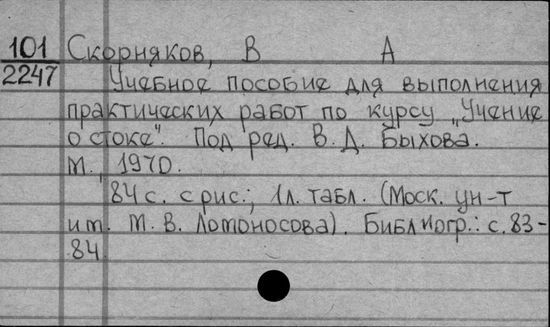 101 Скорняков, В А
2247 Учебное пособие для выполнения
практических работ по курсу „Учение
о стоке". Под ред. В. Д. Быхова.
М., 1970.
84 с. с рис.; 1 л. табл. (Моск. ун-т
им. М. В. Ломоносова). Библиогр.: с. 83-
84